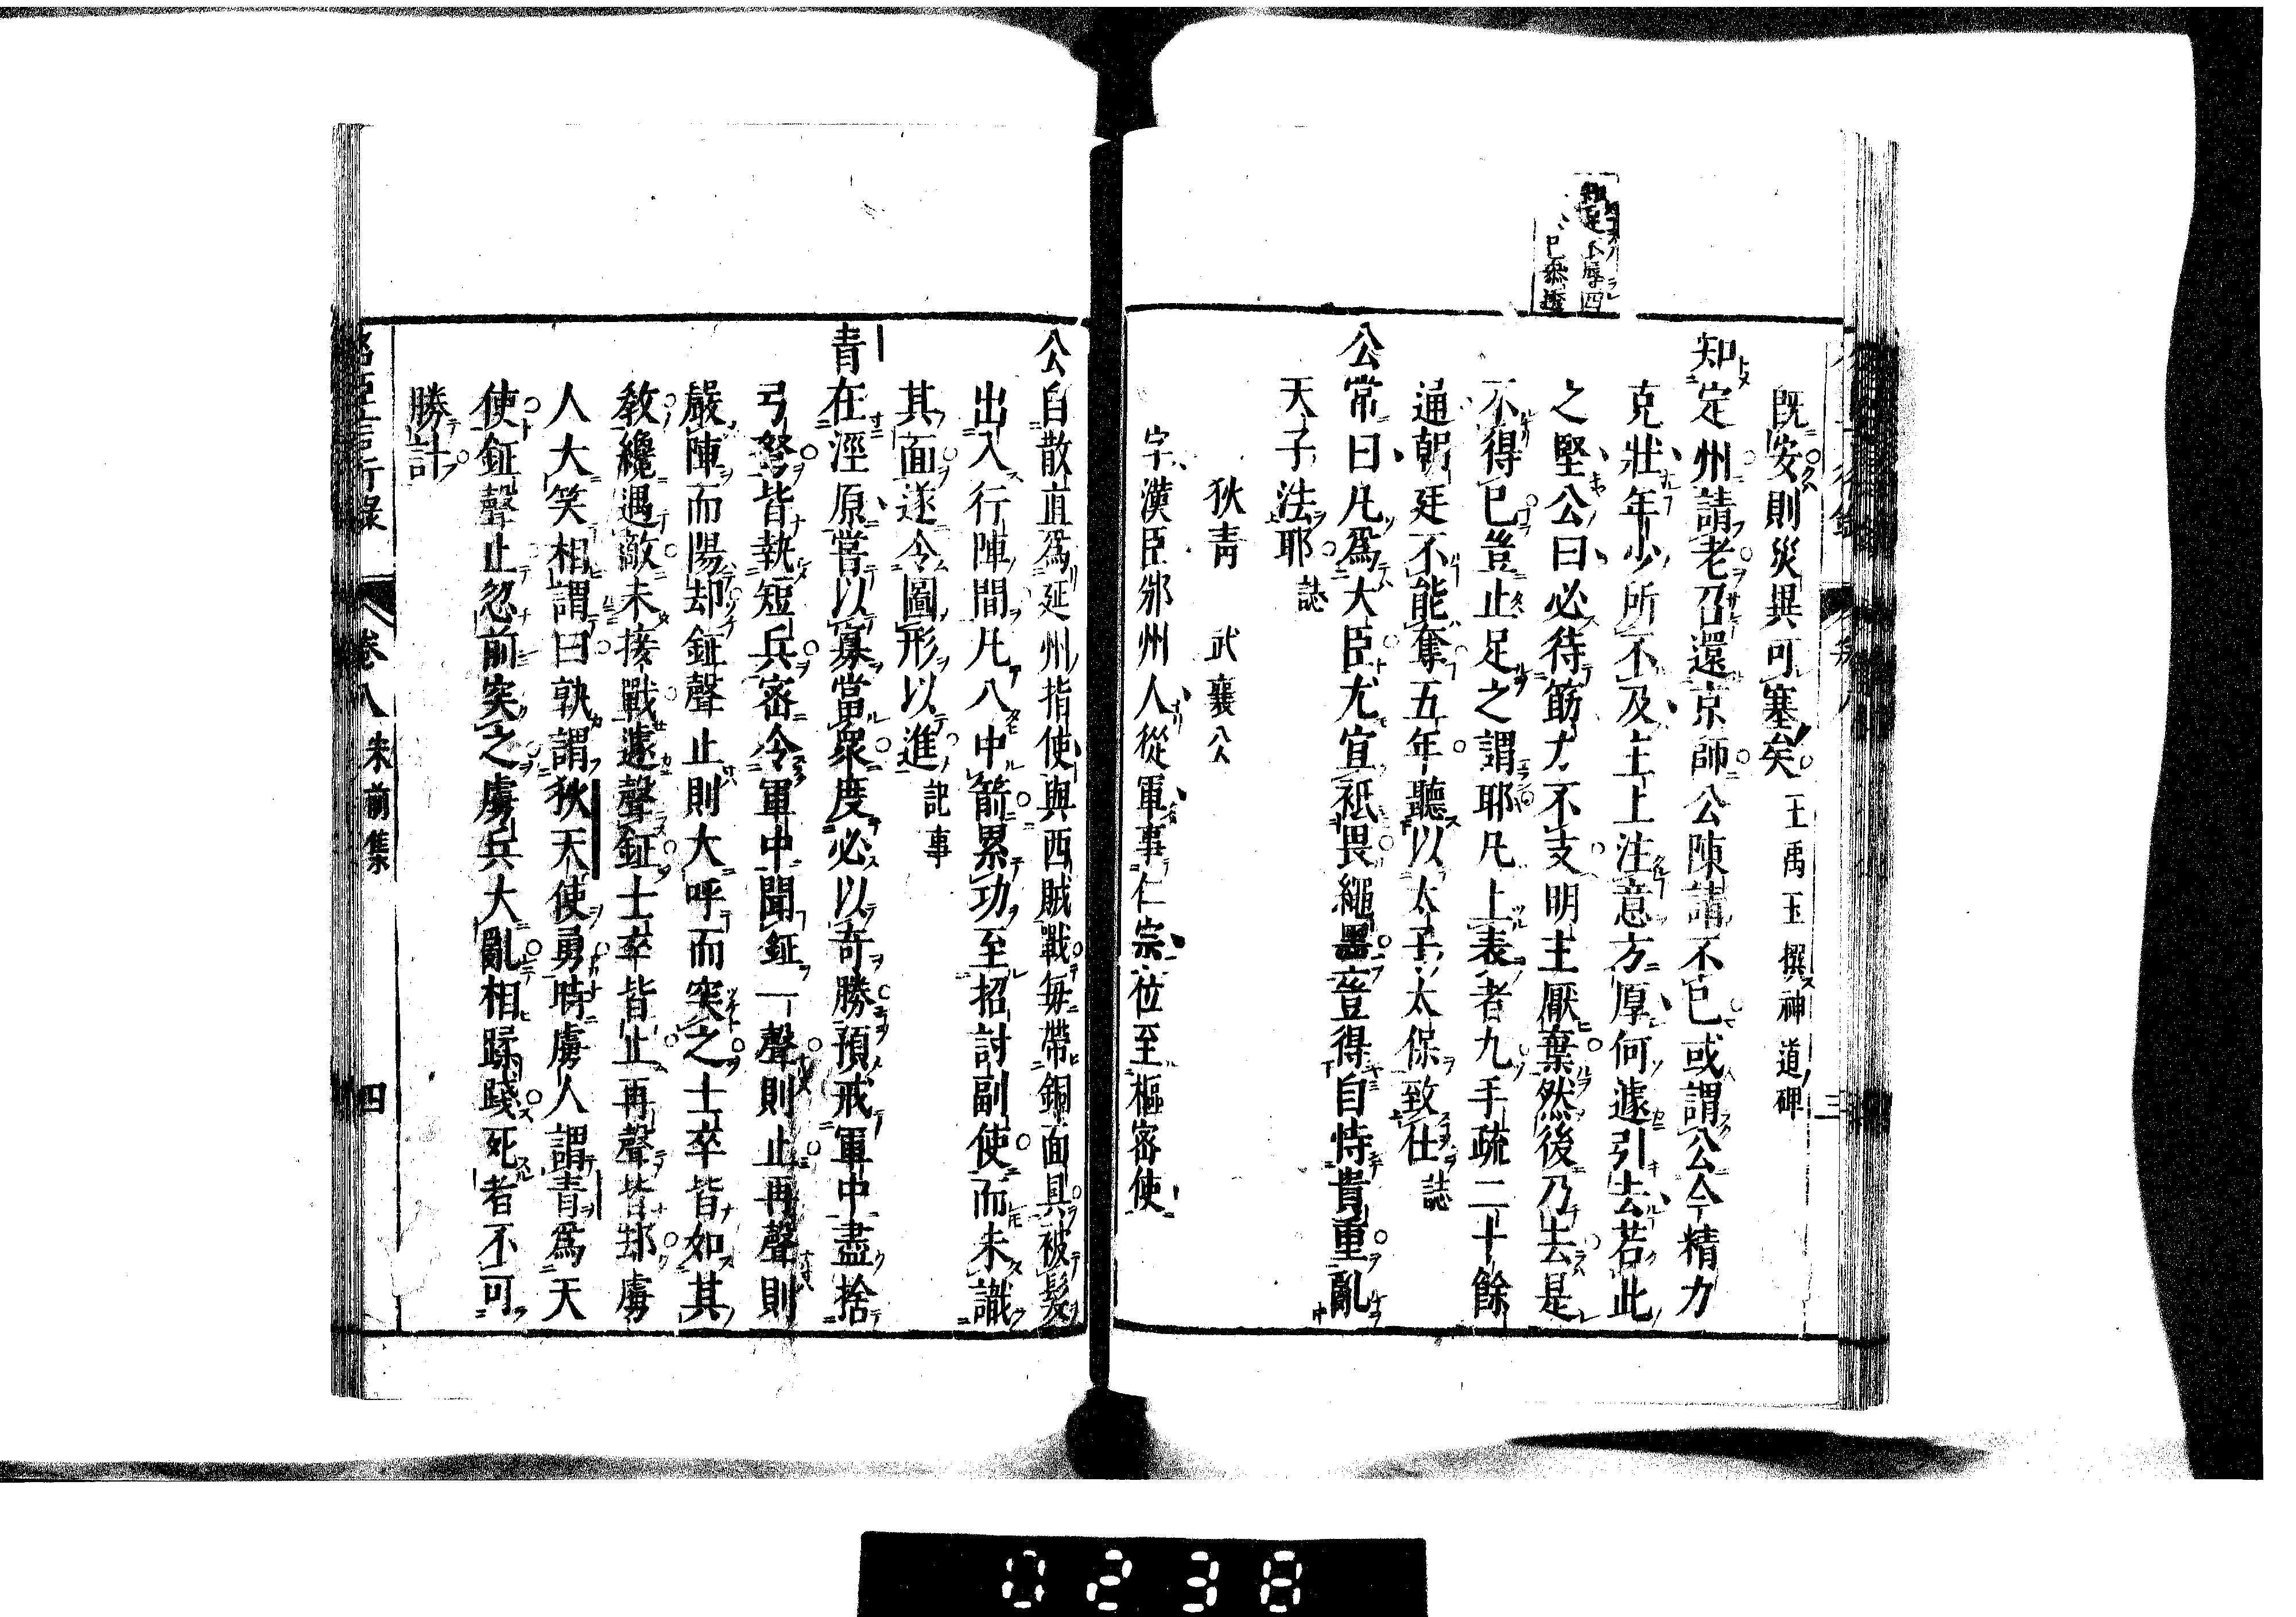 知足不辱四
已上恭按
既安則災異可塞矣王禹玉撰神道碑
知定州請老召還京師公陳請不已或謂公今精力
克壯年少所不及主上注意方厚何遽引去若此
之堅公曰必待筋力不支明主厭棄然後乃去是
不得已豈止足之謂耶凡上表者九手疏二十餘
通朝廷不能奪五年聽以太子太保致仕誌
公常曰凡爲大臣尤宜祗畏繩墨豈得自恃貴重亂
天子法耶誌
狄青 武襄公
字漢臣邠州人從軍事仁宗位至樞密使
公自散直爲延州指使與西賊戰每帶銅面具被髮
出入行陣間凡八中箭累功至招討副使而未識
其面遂令圖形以進記事
青在涇原嘗以寡當衆度必以奇勝預戒軍中盡捨
弓弩皆執短兵密令軍中聞鉦一聲則止再聲則
嚴陣而陽却鉦聲止則大呼而突之士卒皆如其
教纔遇敵未接戰遽聲鉦士卒皆止再聲皆却虜
人大笑相謂曰孰謂狄天使勇時虜人謂青爲天
使鉦聲止忽前突之虜兵大亂相蹂踐死者不可
勝計
名臣言行錄 卷八 朱前集 四